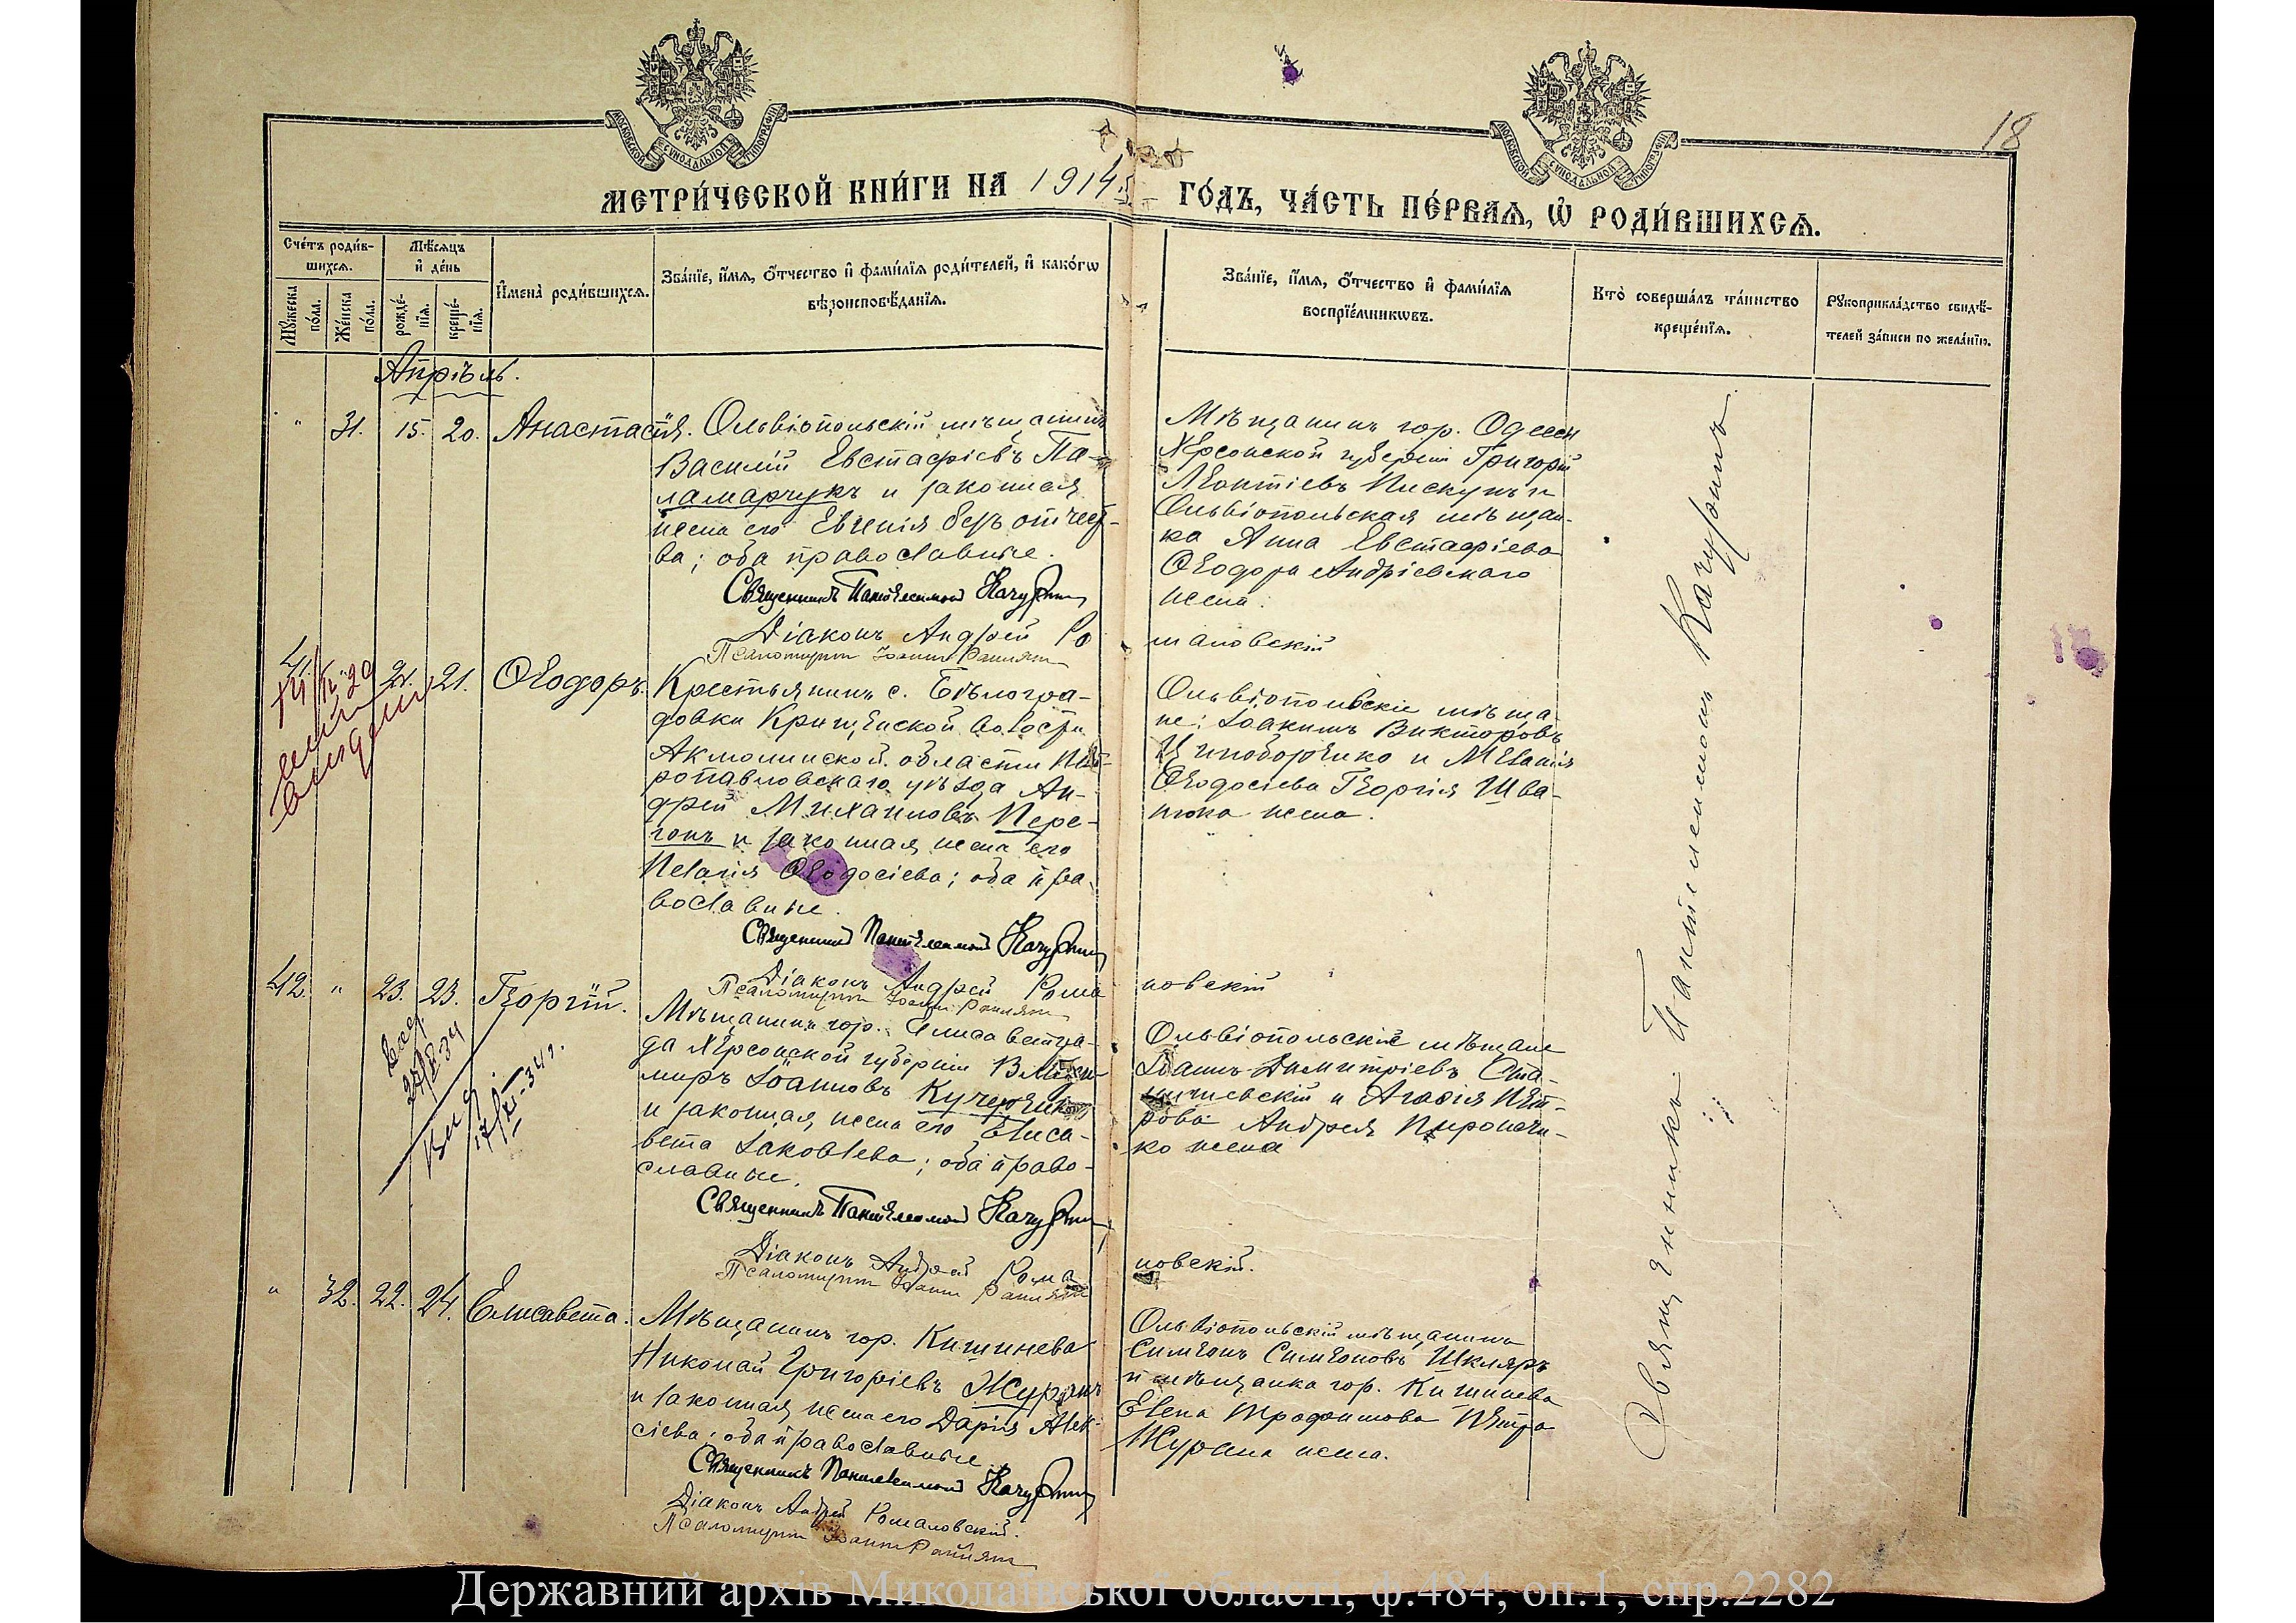 МОСКОВСКОЙ СУНОДАЛЬНОЙ ТИПОГРАФІИ
МОСКОВСКОЙ СУНОДАЛЬНОЙ ТИПОГРАФІИ
18
МЕТРИ́ЧЕСКОЙ КНИ́ГИ НА 1914
ГО́ДЪ, ЧА́СТЬ ПЕ́РВАѦ, Ѽ РОДИ́ВШИХСѦ.
Сче́тъ роди́в-
шихсѧ.
Мꙋжеска по́ла.
Же́нска по́ла.
Мѣ́сѧцъ
и҆ де́нь
рожде́-
нїѧ.
креще́-
нїѧ.
И҆мена̀ роди́вшихсѧ.
Зва́нїе, и҆́мѧ, ѻ҆́тчество и҆ фами́лїѧ роди́телей, и҆ како́гѡ
вѣроисповѣ́данїѧ.
Зва́нїе, и҆́мѧ, ѻ҆́тчество и҆ фами́лїѧ
воспрїе́мникѡвъ.
Кто̀ соверша́лъ та́инство
креще́нїѧ.
Рꙋкоприкла́дство свидѣ́-
телей за́писи по жела́нїю.
Апрѣль.
" 31. 15. 20. Анастасія. Ольвіопольскій мѣщанинъ
Василій Евстафіевъ Па-
ламарчукъ и законная
жена его Евгенія безъ отчест-
ва; оба православные.
Священникъ Пантелеимонъ
Діаконъ Андрей Ро
мановскій
Псаломщикъ Іоаннъ
Мѣщанинъ гор. Одессы
Херсонской губерніи Григорій
Леонтіевъ Пискунъ и
Ольвіопольская мѣщан-
ка Анна Евстафіева
Ѳеодора Андріевскаго
жена.
41. 21. 21. Ѳеодоръ. Крестьянинъ с. Бѣлогра-
довки Крищенской волости
Акмолинской области Пет-
ропавловскаго уѣзда Ан-
дрей Михаиловъ Пере-
гонъ и законная жена его
Меланія Ѳеодосіева; оба пра-
вославные.
Священникъ Пантелеимонъ
Діаконъ Андрей Рома
новскій
Псаломщикъ Іоаннъ
Ольвіопольскіе мѣща-
не: Іоакимъ Викторовъ
и Меланія
Ѳеодосіева Георгія Шва-
нюка жена.
42. " 23. 23. Георгій. Мѣщанинъ гор. Елисаветгра-
да Херсонской губерніи Влади-
миръ Іоанновъ Кучеренко
и законная жена его Елиса-
вета Іаковлева; оба право-
славные.
Священникъ Пантелеимонъ
Діаконъ Андрей Рома
новскій.
Псаломщикъ Іоаннъ
Ольвіопольскіе мѣщане
Іоаннъ Димитріевъ Ста-
и Агафія Пет-
рова Андрея
ко жена
" 32. 22. 24. Елисавета. Мѣщанинъ гор. Кишинева
Николай Григоріевъ
и законная жена его Дарія Алек-
сіева; оба православные.
Священникъ Пантелеимонъ
Діаконъ Андрей Романовскій.
Псаломщикъ Іоаннъ
Ольвіопольскій мѣщанинъ
Симеонъ Симеоновъ Шкляръ
и мѣщанка гор. Кишинева
Елена Трофимова Петра
жена.
Священникъ Пантелеимонъ
Державний архів Миколаївської області, ф.484, оп.1, спр.2282